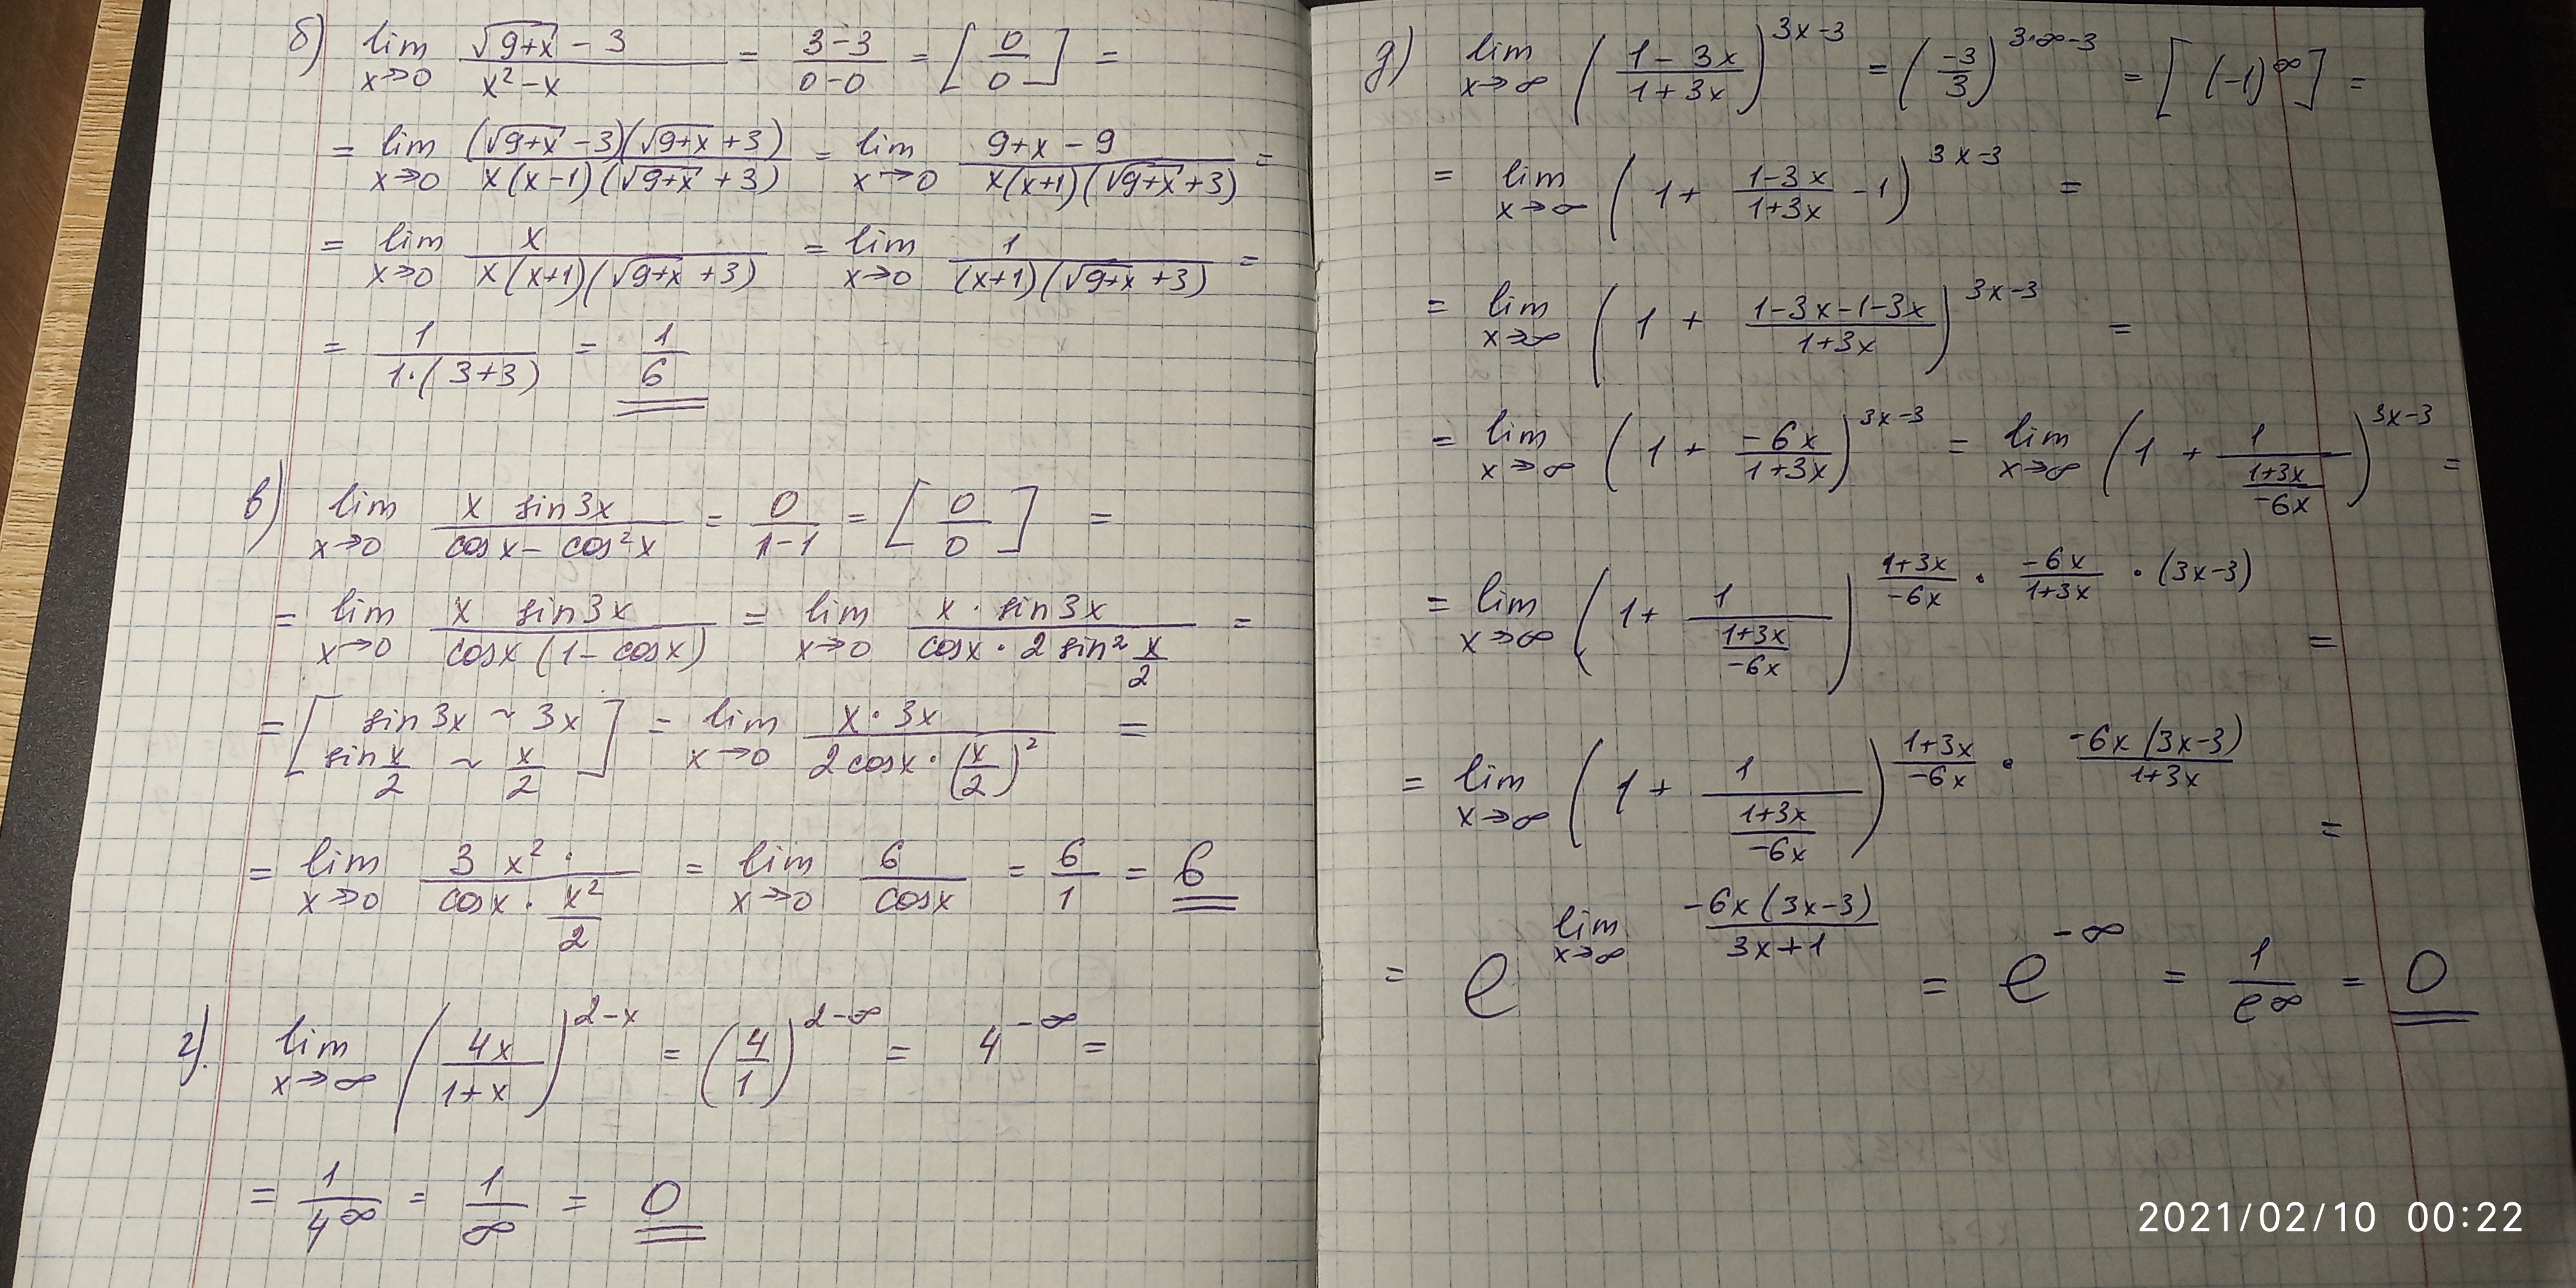 б) lim x→0 (√(9+x) - 3)/(x² - x) = (3-3)/(0-0) = [0/0] =
= lim x→0 ((√(9+x) - 3)(√(9+x) + 3))/(x(x-1)(√(9+x) + 3)) = lim x→0 (9+x-9)/(x(x+1)(√(9+x) + 3)) =
= lim x→0 x/(x(x+1)(√(9+x) + 3)) = lim x→0 1/((x+1)(√(9+x) + 3)) =
= 1/(1·(3+3)) = 1/6
в) lim x→0 (x sin3x)/(cosx - cos²x) = 0/(1-1) = [0/0] =
= lim x→0 (x sin3x)/(cosx(1-cosx)) = lim x→0 (x · sin3x)/(cosx · 2 sin² x/2) =
= [sin3x ~ 3x sin x/2 ~ x/2] = lim x→0 (x·3x)/(2cosx·(x/2)²) =
= lim x→0 (3x²·)/(cosx · x²/2) = lim x→0 6/cosx = 6/1 = 6
г). lim x→∞ (4x/(1+x))^(2-x) = (4/1)^(2-∞) = 4^(-∞) =
= 1/4^∞ = 1/∞ = 0
д) lim x→∞ ((1-3x)/(1+3x))^(3x-3) = (-3/3)^(3·∞-3) = [(-1)^∞] =
= lim x→∞ (1 + (1-3x)/(1+3x) - 1)^(3x-3) =
= lim x→∞ (1 + (1-3x-1-3x)/(1+3x))^(3x-3) =
= lim x→∞ (1 + (-6x)/(1+3x))^(3x-3) = lim x→∞ (1 + 1/((1+3x)/(-6x)))^(3x-3) =
= lim x→∞ (1 + 1/((1+3x)/(-6x)))^((1+3x)/(-6x) · (-6x)/(1+3x) · (3x-3)) =
= lim x→∞ (1 + 1/((1+3x)/(-6x)))^((1+3x)/(-6x) · (-6x(3x-3))/(1+3x)) =
= e^(lim x→∞ (-6x(3x-3))/(3x+1)) = e^(-∞) = 1/e^∞ = 0
2021/02/10 00:22